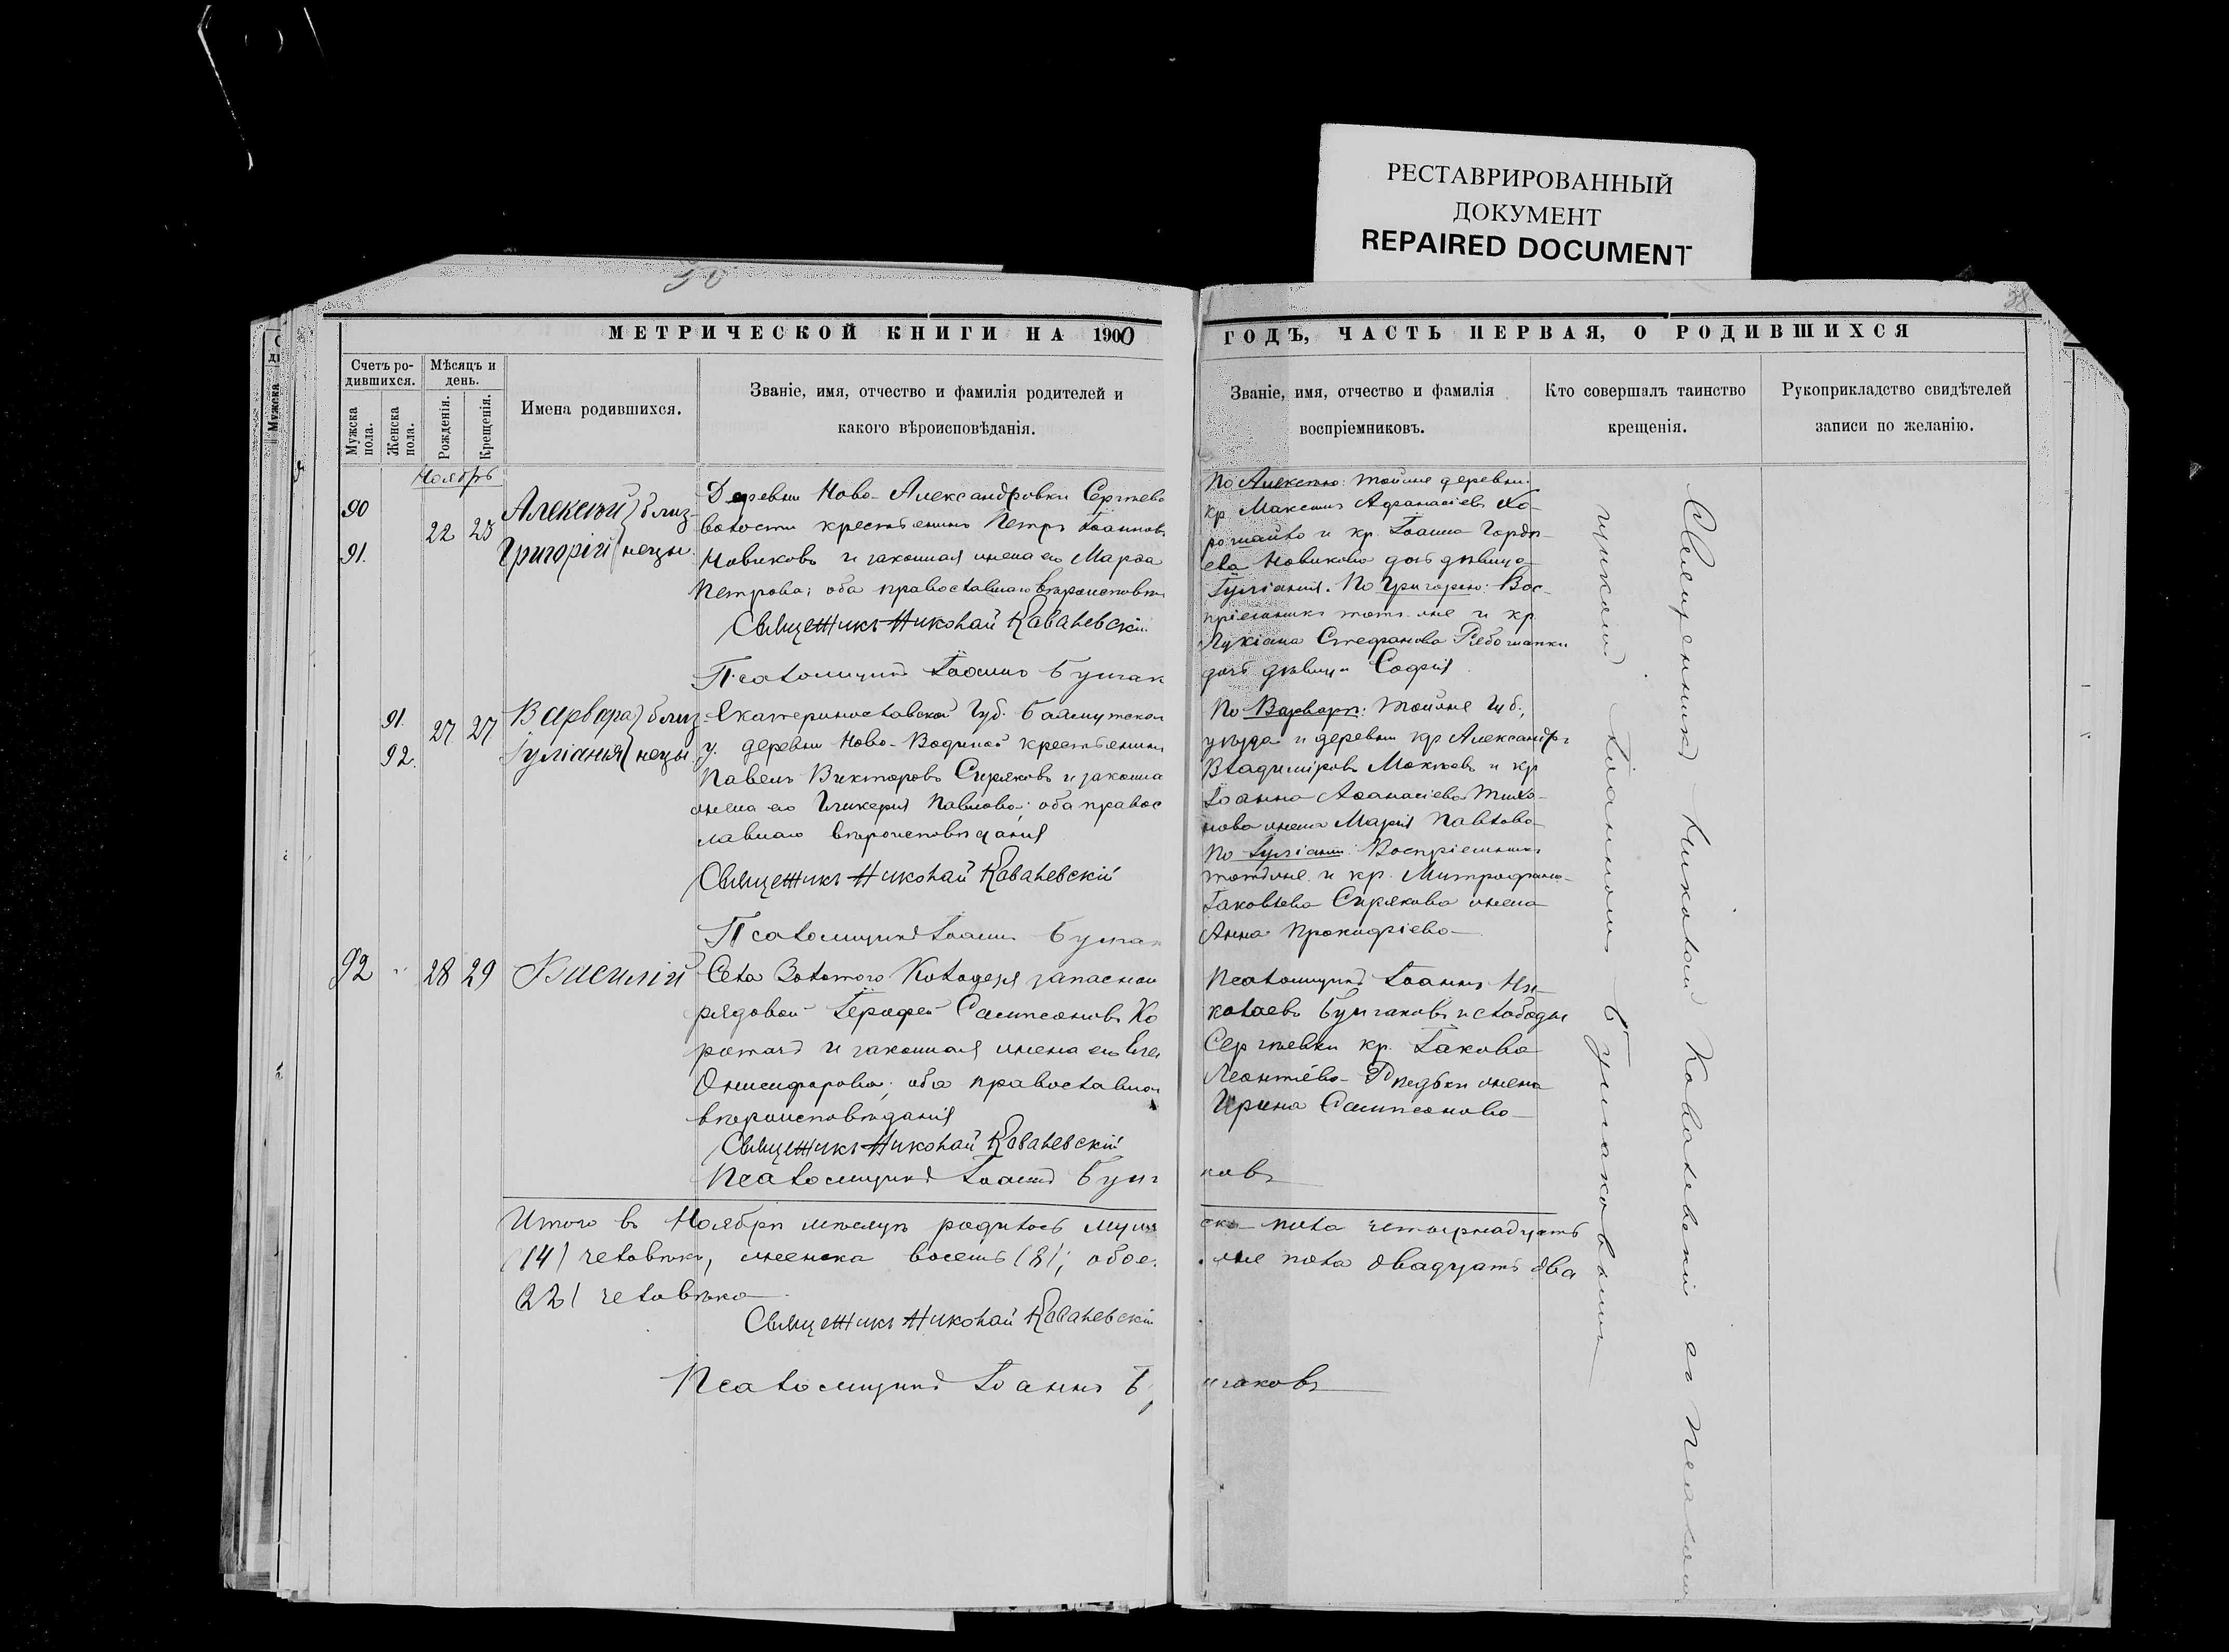 РЕСТАВРИРОВАННЫЙ
ДОКУМЕНТ
REPAIRED DOCUMENT
50
38
МЕТРИЧЕСКОЙ КНИГИ НА 1900
Счетъ ро-
дившихся.
Мужска
пола.
Женска
пола.
Мѣсяцъ и
день.
Рожденія.
Крещенія.
Имена родившихся.
Званіе, имя, отчество и фамилія родителей и
какого вѣроисповѣданія.
Ноябрь
90
91.
22 23
Алексѣй } близ-
Григорій } нецы.
Деревни Ново-Александровки Сергѣев
волости крестьянинъ Петръ Іоанновъ
Новиковъ и законная жена его Марѳа
Петрова; оба православнаго вѣроисповѣд
Священникъ Николай Коваленскій
Псаломщикъ Іоаннъ Булгак
91.
92.
27 27
Варвара } близ-
Іуліанія } нецы.
Екатеринославской Губ. Бахмутскаго
у. деревни Ново-Водяной крестьянинъ
Павелъ Викторовъ Сиряковъ и законна
жена его Гликерія Павлова; оба правос
лавнаго вѣроисповѣданія
Священникъ Николай Коваленскій
Псаломщикъ Іоаннъ Булгак
92 " 28 29 Василій
Села Золотого Колодезя запасной
рядовой Іерофей Сампсоновъ Ко
ротачъ и законная жена его
Онисифорова; оба православнаго
вѣроисповѣданія
Священникъ Николай Коваленскій
Псаломщикъ Іоаннъ Булг
Итого въ Ноябрѣ мѣсяцѣ родилось муж
(14) человѣкъ, женска восемь (8); обое
(22) человѣка
Священникъ Николай Коваленскій
Псаломщикъ Іоаннъ Бу
ГОДЪ, ЧАСТЬ ПЕРВАЯ, О РОДИВШИХСЯ
Званіе, имя, отчество и фамилія
воспріемниковъ.
Кто совершалъ таинство
крещенія.
Рукоприкладство свидѣтелей
записи по желанію.
По Алексѣю: тойже деревни
кр. Максимъ Афанасіевъ Хо-
рошайло и кр. Іоанна Гордѣ-
ева Новикова дочь дѣвица
Іуліанія. По Григорію: Вос-
пріемникъ тотъ же и кр.
Лукіана Стефанова Рябошапки
дочь дѣвица Софія
По Варварѣ: тойже Губ.,
уѣзда и деревни кр. Александръ
Владиміровъ Мокѣевъ и кр.
Іоанна Аѳанасіева Тихо-
нова жена Марія Павлова
По Іуліаніи: Воспріемникъ
тотъ же и кр. Митрофана
Іаковлева Сирякова жена
Анна Прокофіева
Псаломщикъ Іоаннъ Ни-
колаевъ Булгаковъ и слободы
Сергѣевки кр. Іакова
Леонтіева Рѣдьки жена
Ирина Сампсонова
ковъ
ска пола четырнадцать
же пола двадцать два
лгаковъ
Священникъ Николай Коваленскій съ Псалом-
щикомъ Іоанномъ Булгаковымъ